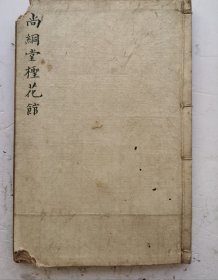 尚絅堂橝花館